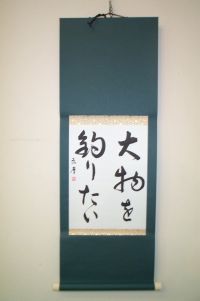 大物を
釣りたい